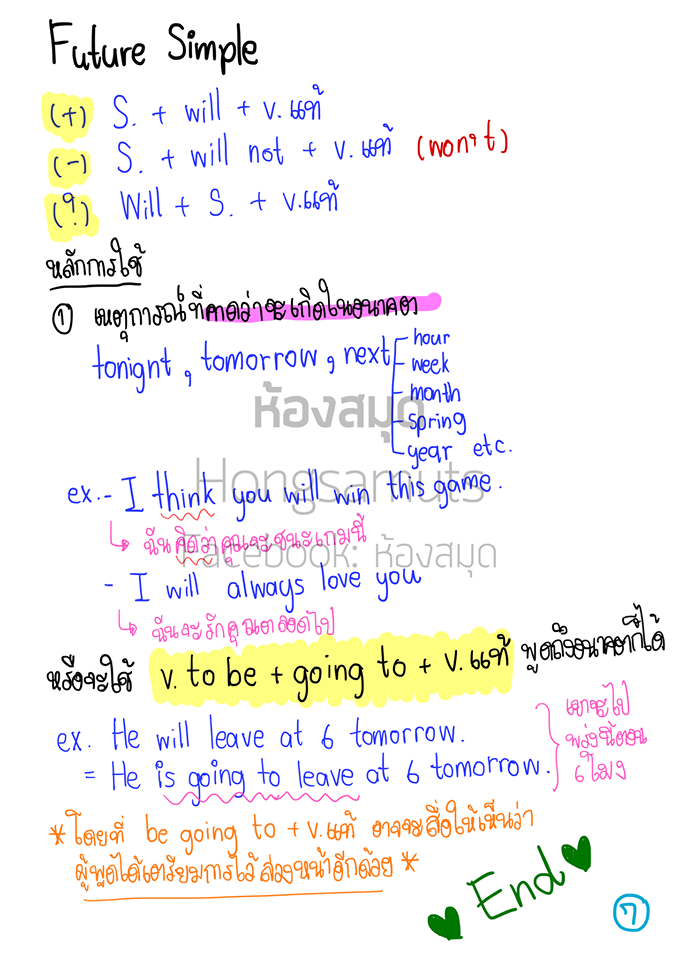 Future Simple
(+) S. + will + v.แท้
(-) S. + will not + v.แท้ (won't)
(?) Will + S. + v.แท้
หลักการใช้
① เหตุการณ์ที่คาดว่าจะเกิดในอนาคต
tonight, tomorrow, next
hour
week
month
spring
year etc.
ห้องสมุด
Hongsamuts
ex. - I think you will win this game.
ฉันคิดว่าคุณจะชนะเกมนี้
Facebook: ห้องสมุด
- I will always love you
ฉันจะรักคุณตลอดไป
หรือจะใช้ v. to be + going to + v.แท้ พูดถึงอนาคตก็ได้
ex. He will leave at 6 tomorrow.
= He is going to leave at 6 tomorrow.
เขาจะไป
พรุ่งนี้ตอน
6 โมง
*โดยที่ be going to + v.แท้ อาจจะสื่อให้เห็นว่า
ผู้พูดได้เตรียมการไว้ล่วงหน้าอีกด้วย*
End
ๆ